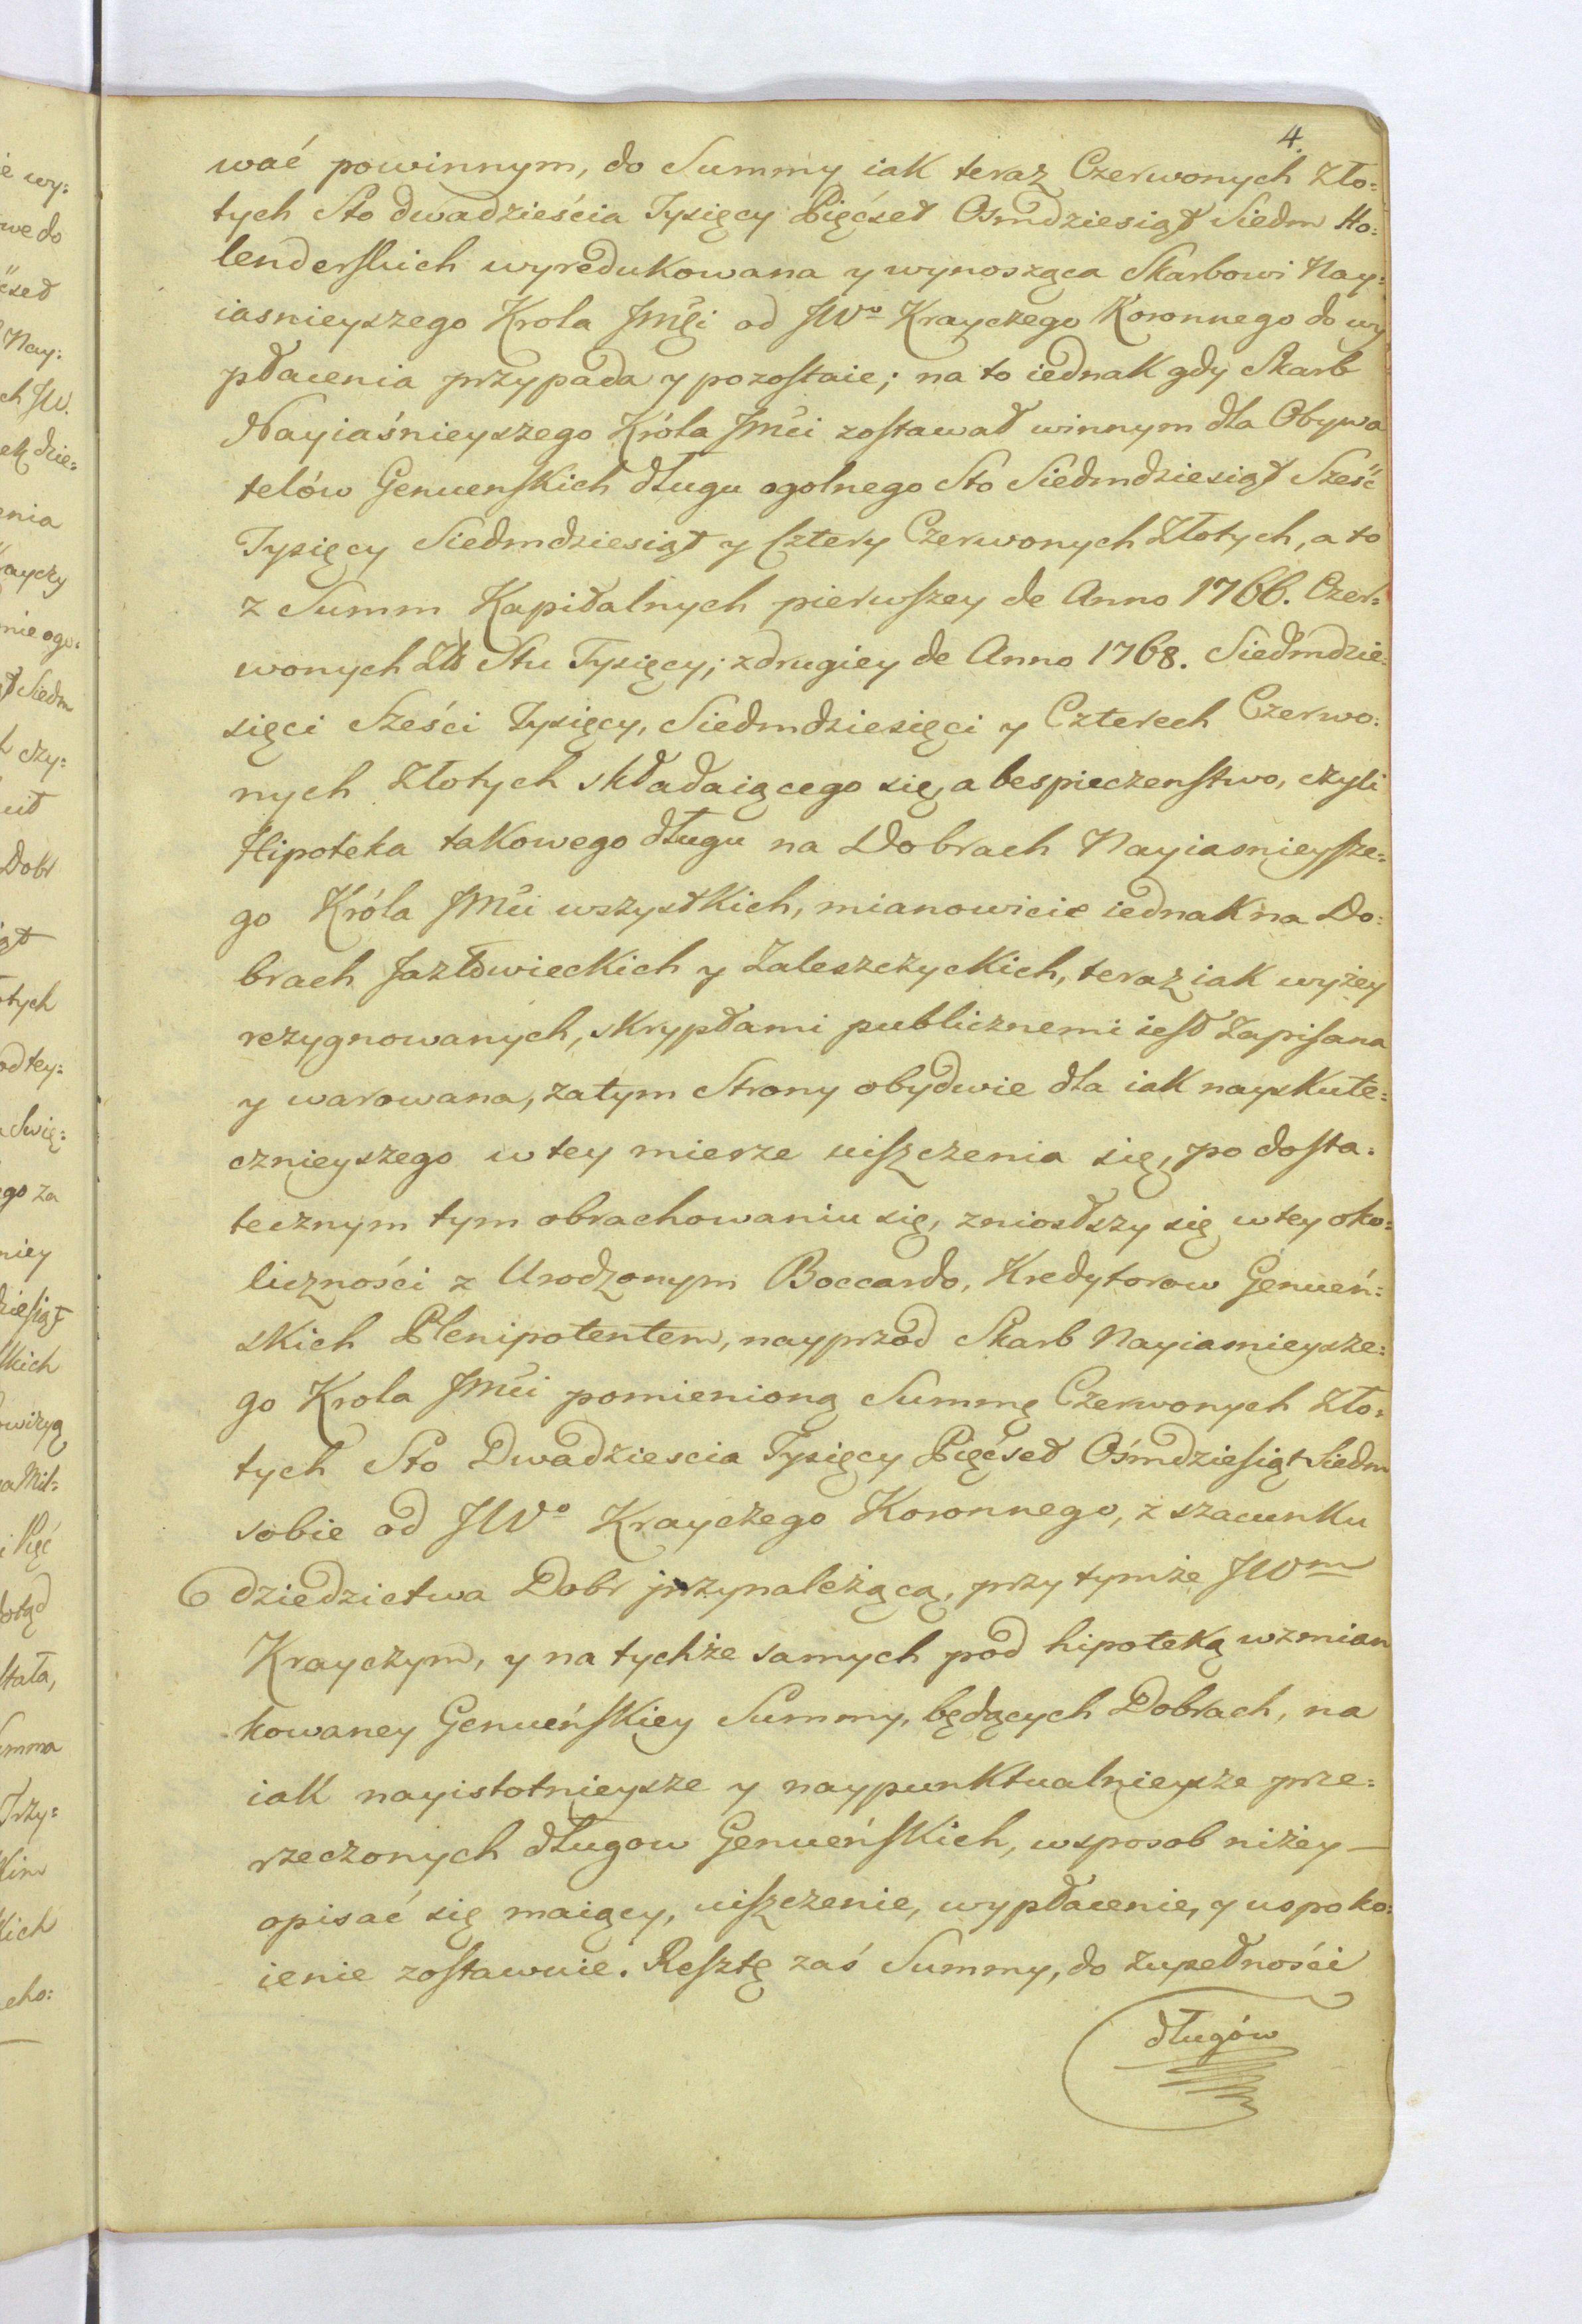 4.
wać powinnym, do Summy iak teraz Czerwonych Zło:
tych Sto dwadzieścia Tysięcy Pięćset Osmdziesiąt Siedm Ho:
lenderskich wyredukowana y wynosząca Skarbowi Nay:
iasnieyszego Krola JMci od JWo Krayczego Koronnego do wy
płacenia przypada y pozostaie; na to iednak gdy Skarb
Nayiaśnieyszego Króla JMci zostawał winnym dla Obywa
telów Genuenskich długu ogolnego Sto Siedmdziesiąt Sześć
Tysięcy Siedmdziesiąt y Cztery Czerwonych Złotych, a to
z Summ Kapitalnych pierwszey de Anno 1766. Czer:
wonych Zło Stu Tysięcy; z drugiey de Anno 1768. Siedmdzie:
sięci Sześci Tysięcy, Siedmdziesięci y Czterech Czerwo:
nych Złotych składaiącego się, a bespieczenstwo, czyli
Hipoteka takowego długu na Dobrach Nayiasnieysze:
go Króla JMci wszystkich, mianowicie iednak na Do:
brach Jazłowieckich y Zaleszczyckich, teraz iak wyżey
rezygnowanych, skryptami publicznemi iest Zapisana
y warowana, zatym Strony obydwie dla iak nayskute:
cznieyszego w tey mierze uiszczenia się, po dosta:
tecznym tym obrachowaniu się, zniosłszy się w tey oko:
liczności z Urodzonym Boccardo, Kredytorow Genueń:
skich Plenipotentem, nayprzod Skarb Nayiasnieysze:
go Krola JMci pomienioną Summę Czerwonych Zło:
tych Sto Dwadziescia Tysięcy Pięćset Ośmdziesiąt Siedm
sobie od JWo Krayczego Koronnego, z szacunku
dziedzictwa Dobr przynależącą, przy tymże JWm
Krayczym, y na tychże samych pod hipoteką wzmian
kowaney Genueńskiey Summy, będących Dobrach, na
iak nayistotnieysze y naypunktualnieysze prze:
rzeczonych długow Genueńskich, w sposob niżey —
opisać się maiący, uiszczenie, wypłacenie, y uspoko:
ienie zostawuie. Resztę zaś Summy, do zupełności
długów